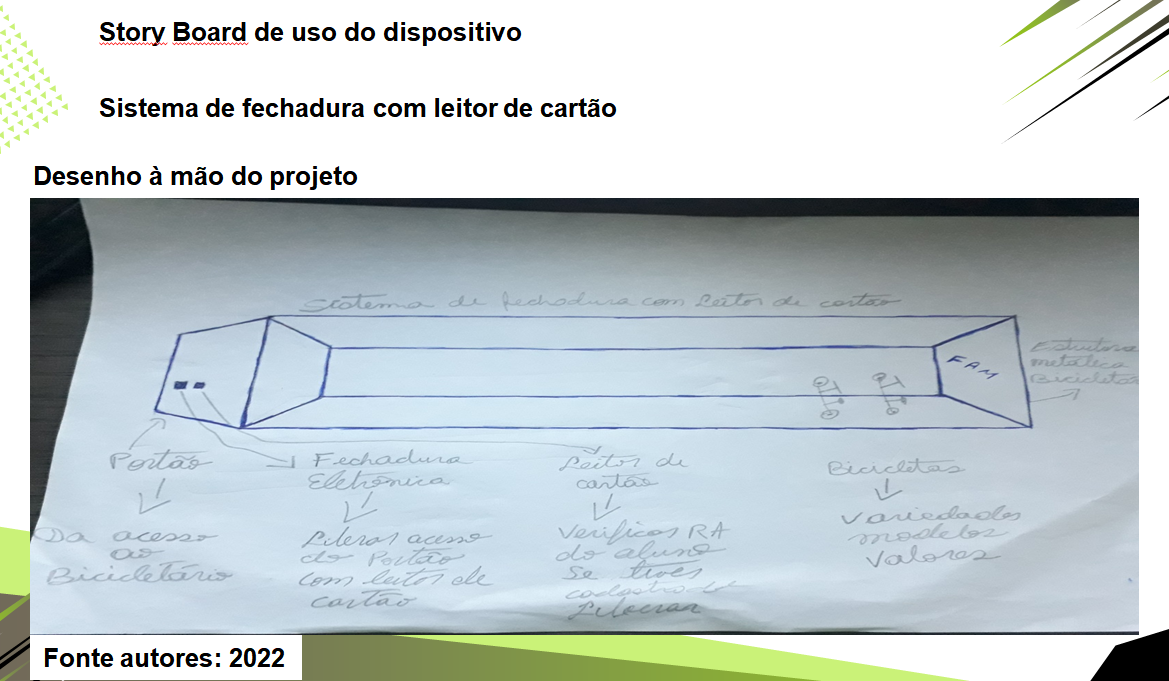 Story Board de uso do dispositivo
Sistema de fechadura com leitor de cartão
Desenho à mão do projeto
Sistema de fechadura com Leitor de cartão
FAM
Estrutura
metálica
Bicicletas
Portão
Da acesso
ao
Bicicletário
Fechadura
Eletrônica
Liberar acesso
do Portão
com leitor de
cartão
Leitor de
cartão
Verificar RA
do aluno
Se tiver
cadastro
Liberar
Bicicletas
Variedades
modelos
Valores
Fonte autores: 2022